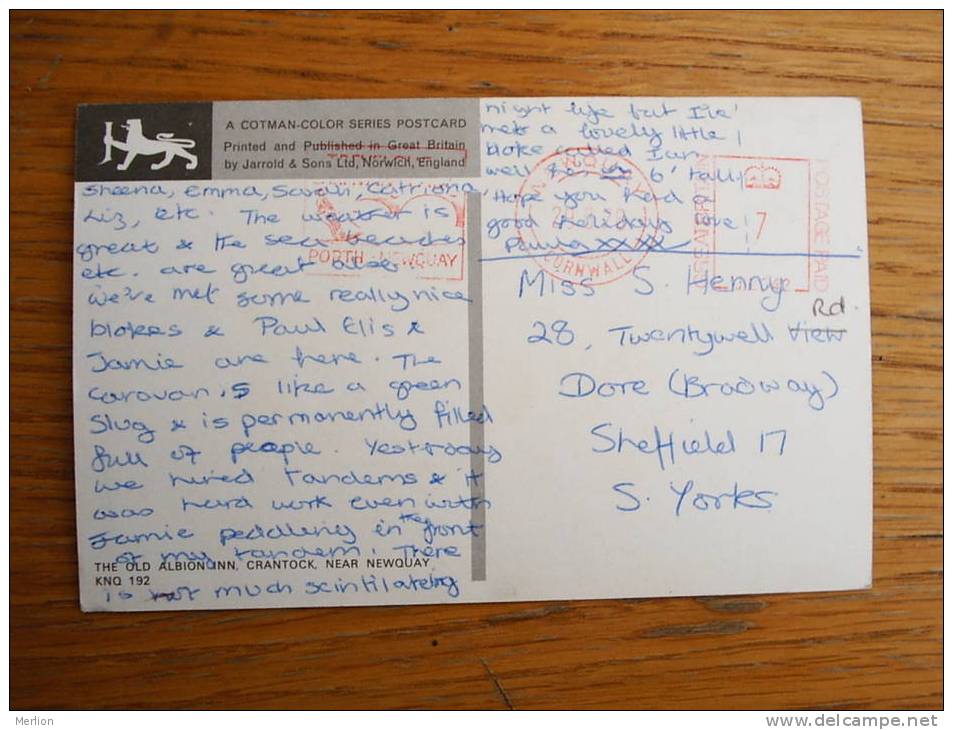 A COTMAN-COLOR SERIES POSTCARD
Printed and Published in Great Britain
by Jarrold & Sons Ltd, Norwich, England
Sheena, Emma, Sarah, Catriona,
Liz, etc. The weather is
great & the sea beaches
etc. are great also.
We've met some really nice
blokes & Paul Elis &
Jamie are here. The
caravan is like a green
slug & is permanently filled
full of people. Yesterday
we hired tandems & it
was hard work even with
Jamie peddling in the front
of my tandem. There
is not much scintilating
night life but I've
met a lovely little
bloke called Ian
well he is 6' tall
Hope you had
good holidays love
Paula xxxx
PORTH NEWQUAY
CORNWALL
7
POSTAGE PAID
GREAT BRITAIN
Miss S. Henry
28, Twentywell View Rd.
Dore (Bradway)
Sheffield 17
S. Yorks
THE OLD ALBION INN, CRANTOCK, NEAR NEWQUAY
KNQ 192
Merlion
www.delcampe.net